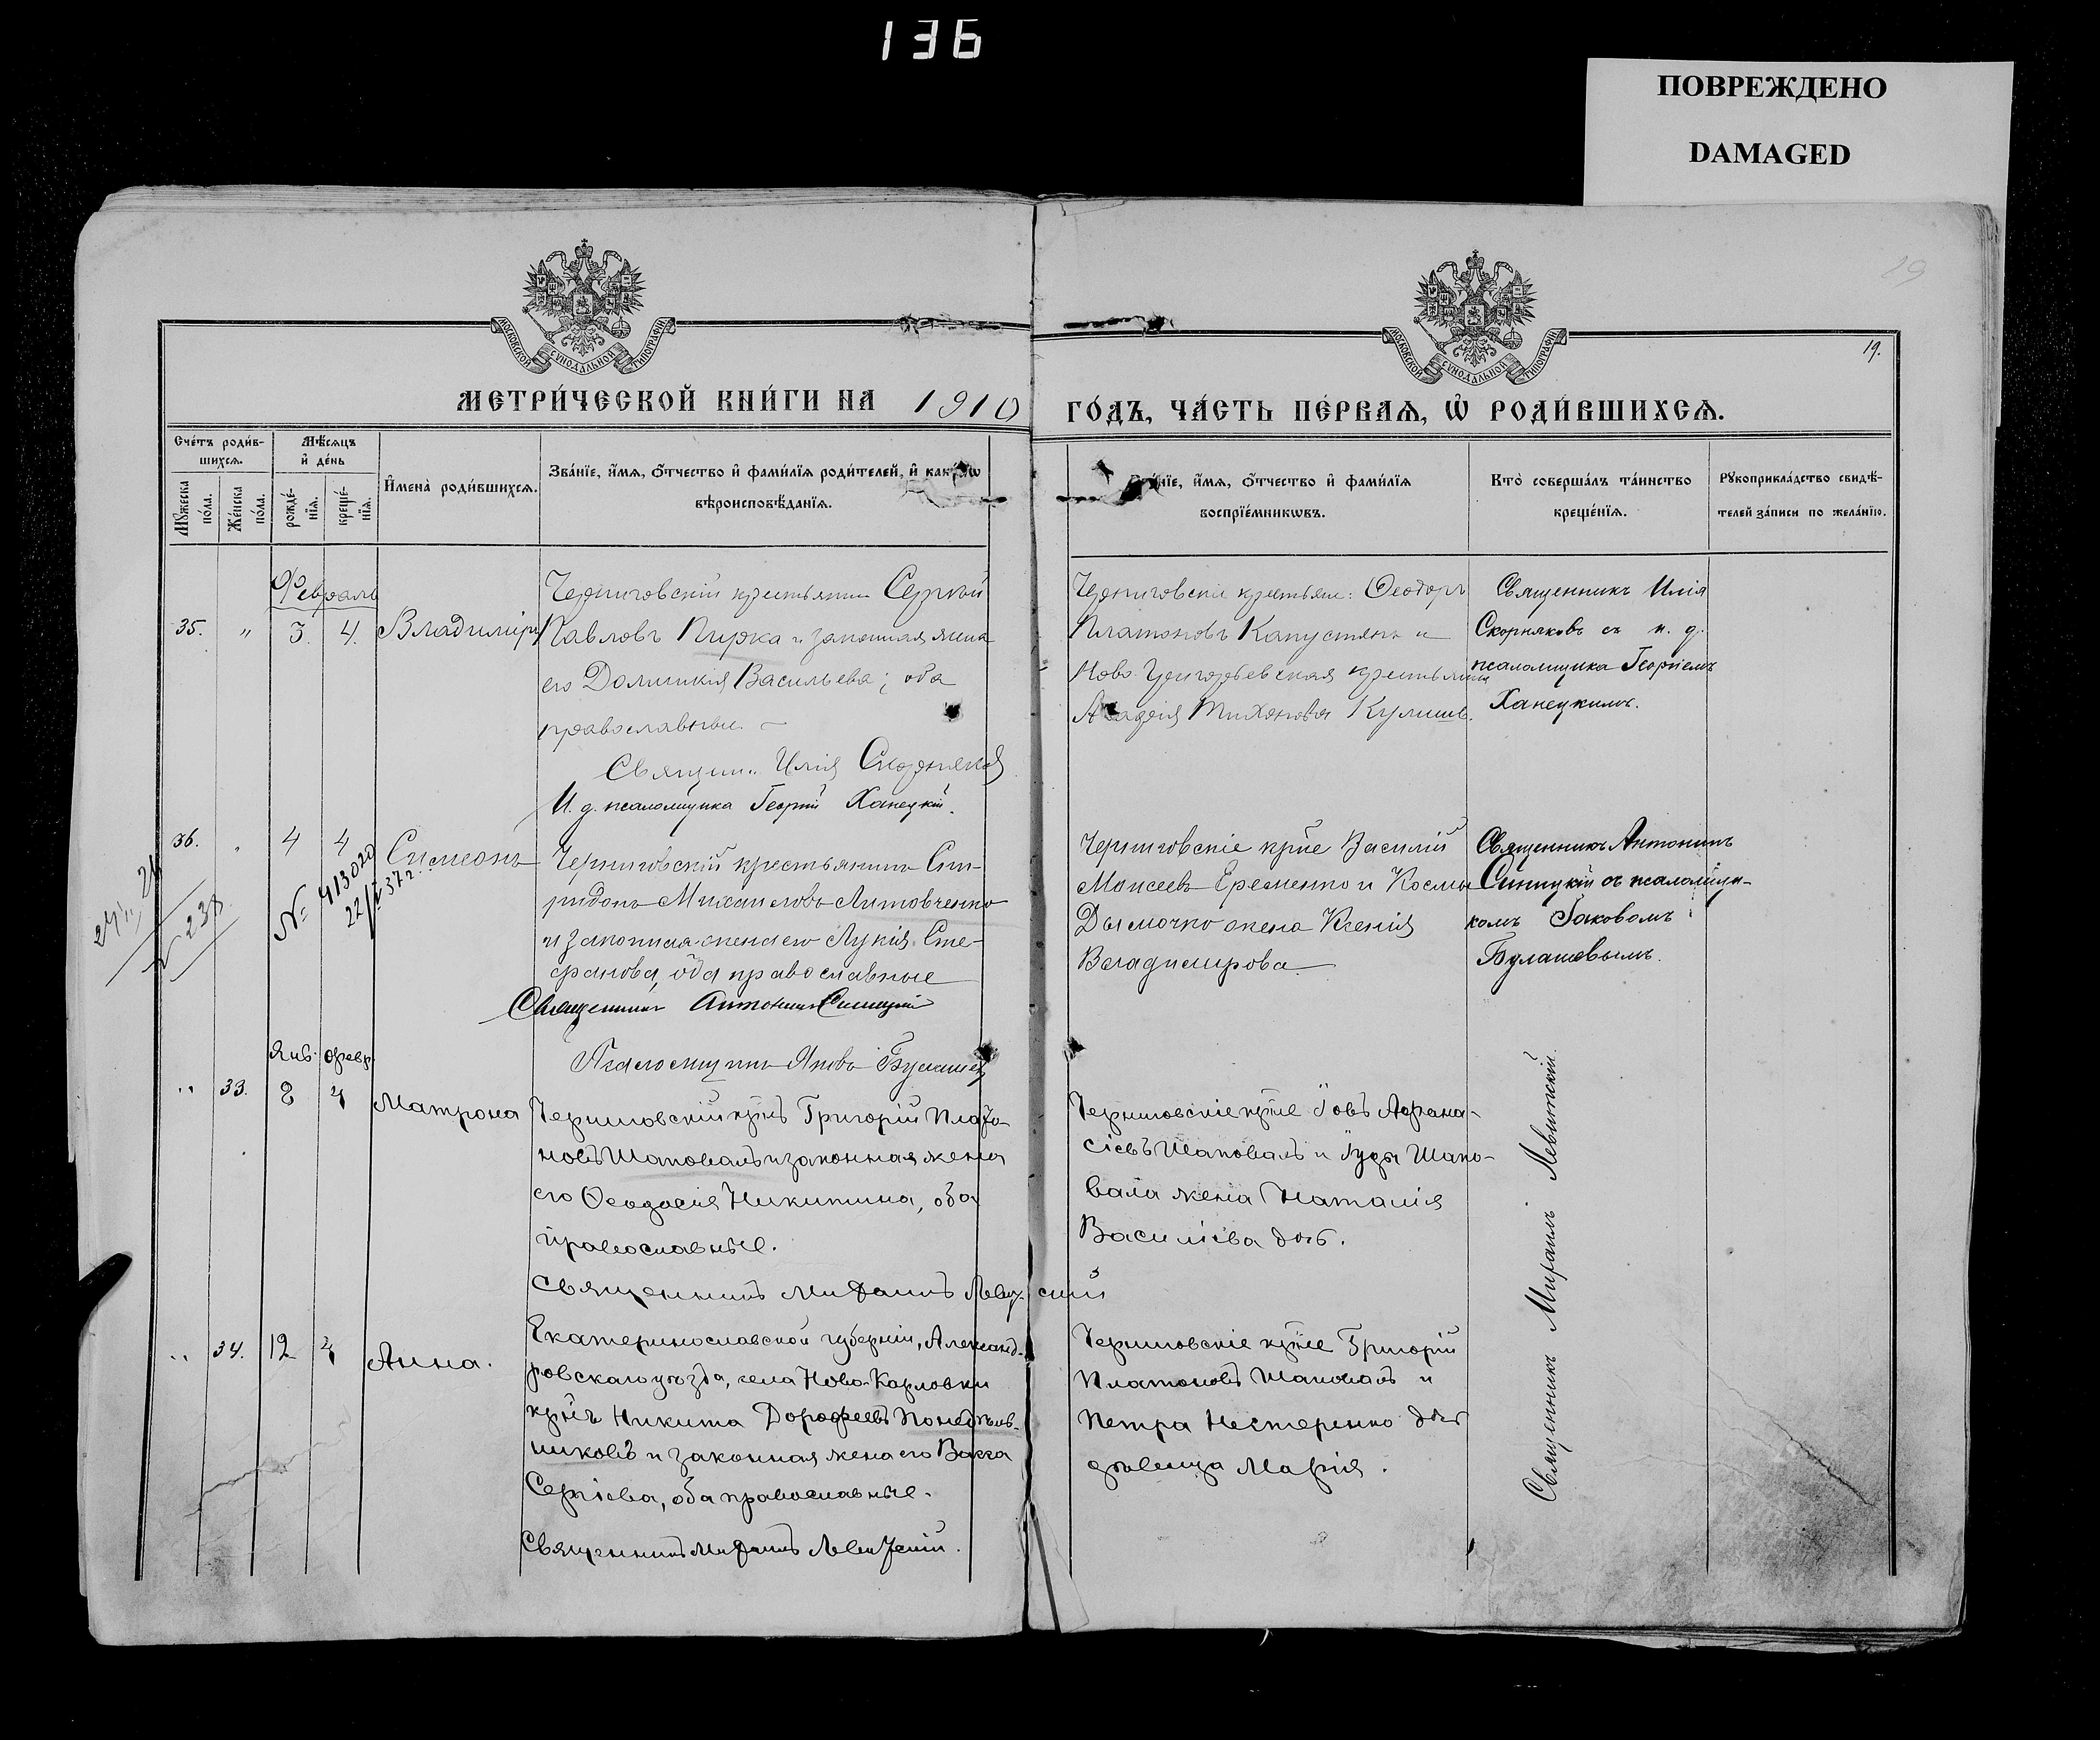 136
ПОВРЕЖДЕНО
DAMAGED
МОСКОВСКОЙ СУНОДАЛЬНОЙ ТИПОГРАФІИ
МОСКОВСКОЙ СУНОДАЛЬНОЙ ТИПОГРАФІИ
19
19.
МЕТРИ́ЧЕСКОЙ КНИ́ГИ НА 1910
ГО́ДЪ, ЧА́СТЬ ПЕ́РВАѦ, Ѡ РОДИ́ВШИХСѦ.
Сче́тъ роди́в-
шихсѧ.
Мꙋжеска по́ла.
Же́нска по́ла.
Мѣ́сѧцъ
и де́нь
рожде́-
нїѧ.
креще́-
нїѧ.
Имена̀ роди́вшихсѧ.
Зва́нїе, и́мѧ, о́тчество и фами́лїѧ роди́телей, и како́гѡ
вѣроисповѣ́данїѧ.
Зва́нїе, и́мѧ, о́тчество и фами́лїѧ
воспрїе́мникѡвъ.
Кто̀ соверша́лъ та́инство
креще́нїѧ.
Рꙋкоприкла́дство свидѣ́-
телей за́писи по жела́нїю.
Февраль
35. " 3. 4. Владиміръ
Черниговскій крестьянин Сергѣй
Павловъ Пирка и законная жена
его Домникія Васильева; оба
православные.
Священ. Илія Скорняковъ
И. д. псаломщика Георгій Ханецкій.
Черниговскіе крестьяне: Ѳеодоръ
Платоновъ Капустянъ и
Ново-Григорьевская крестьянка
Агафія Тихонова Кулишъ.
Священникъ Илія
Скорняковъ съ и. д.
псаломщика Георгіемъ
Ханецкимъ.
36. " 4 4 Симеонъ
№ 413020
238
Черниговскій крестьянинъ Спи-
ридонъ Михаиловъ Литовченко
и законная жена его Лукія Сте-
фанова, оба православные
Священникъ Антонинъ Синицкій
Псаломщикъ Яковъ Булашевъ
Черниговскіе кр̃не Василій
Моисеевъ Еременко и Космы
Дымочко жена Ксенія
Владимирова
Священникъ Антонинъ
Синицкій съ псаломщи-
комъ Іаковомъ
Булашевымъ.
Янв. Февр.
" 33. 8 4 Матрона
Черниговскій кр̃нъ Григорій Плато-
новъ Шаповалъ и законная жена
его Ѳеодосія Никитина, оба
православные.
Священникъ Михаилъ Левитскій
Черниговскіе кр̃не Іовъ Афана-
сіевъ Шаповалъ и Іуды Шапо-
вала жена Наталія
Василіева
" 34. 12 4 Анна.
Екатеринославской губерніи, Александ-
ровскаго уѣзда, села Ново-Карловки
кр̃нъ Никита Дорофеевъ Понедѣль-
никовъ и законная жена его Васса
Сергіева, оба православные.
Священникъ Михаилъ Левитскій.
Черниговскіе кр̃не Григорій
Платоновъ Шаповалъ и
Петра Нестеренко
дѣвица Марія.
Священникъ Михаилъ Левитскій.